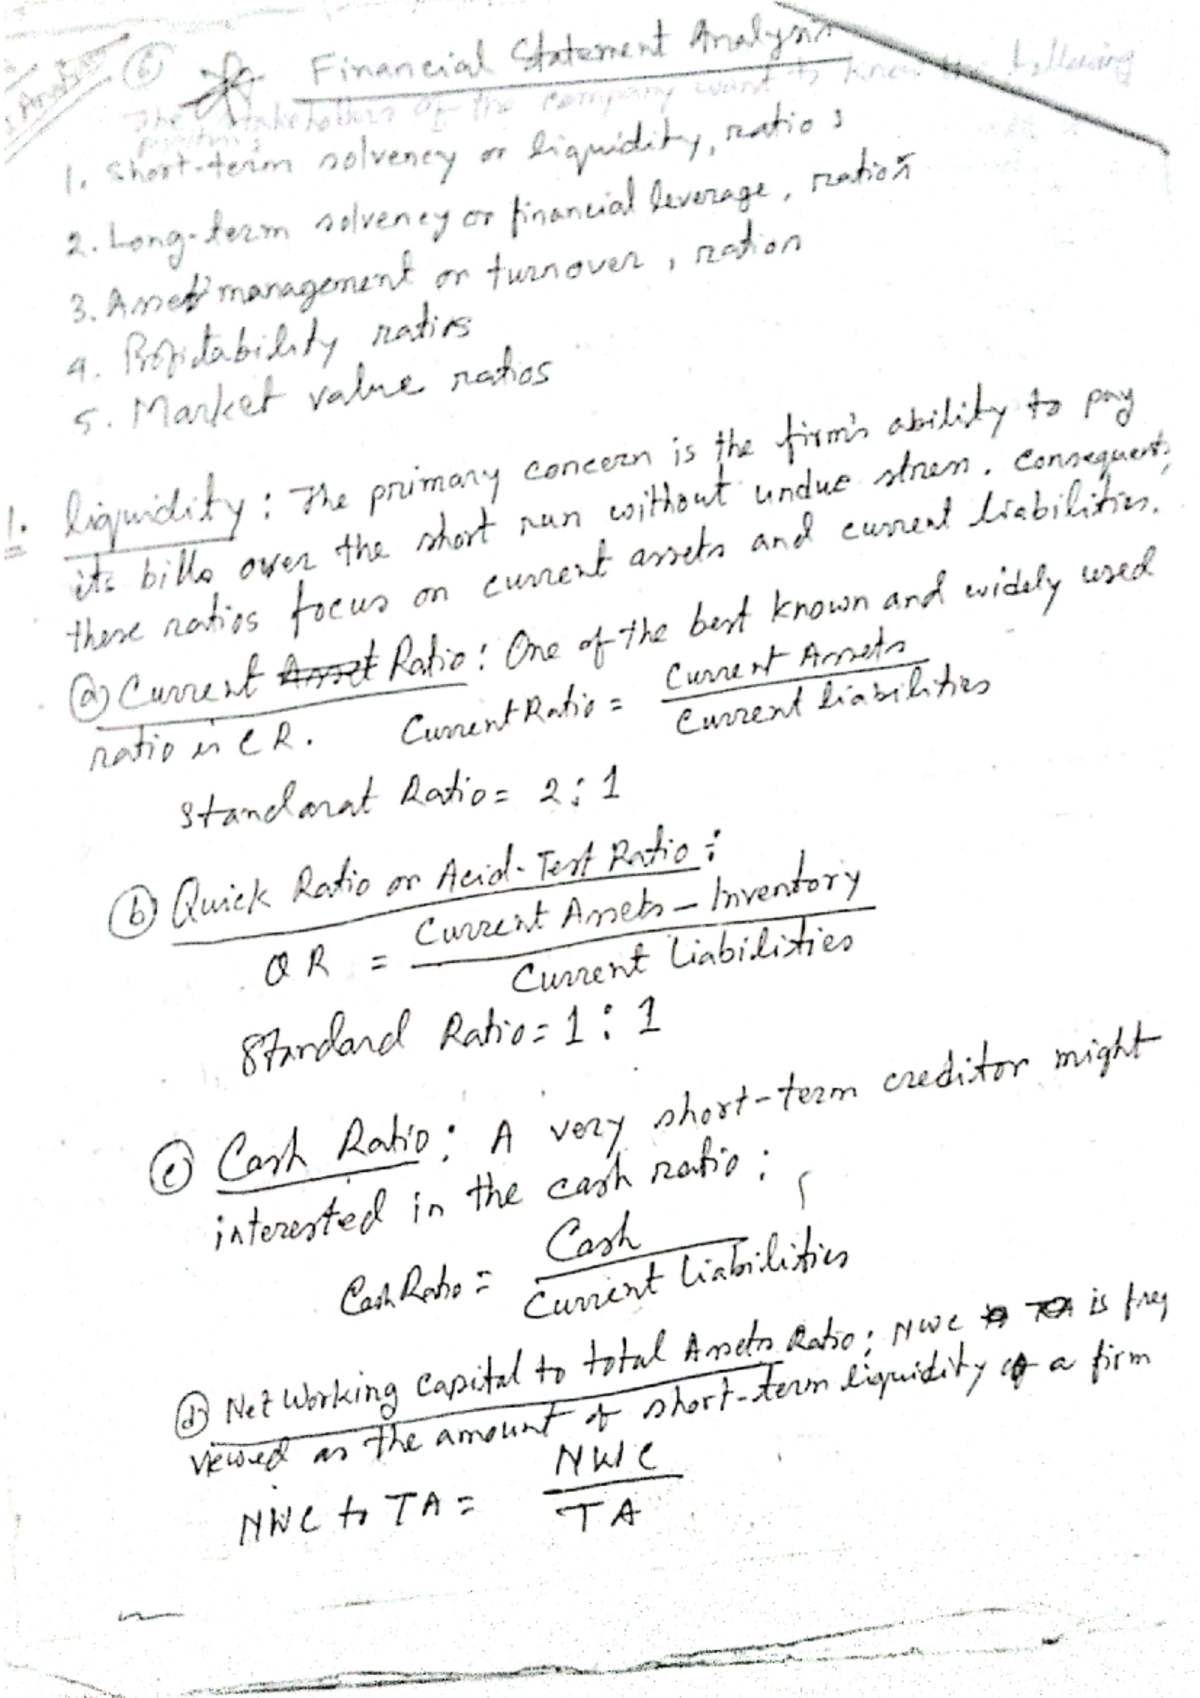 6 Financial Statement Analysis
The stakeholders of the company want to know the following
positions
1. Short-term solvency or liquidity, ratios
2. Long-term solvency or financial leverage, ratios
3. Asset management or turnover, ratios
4. Profitability ratios
5. Market value ratios
1. liquidity : The primary concern is the firm's ability to pay
its bills over the short run without undue stress. Consequently,
these ratios focus on current assets and current liabilities.
(a) Current Asset Ratio : One of the best known and widely used
ratio is CR. Current Ratio = Current Assets
Current liabilities
Standarat Ratio = 2 : 1
(b) Quick Ratio or Acid-Test Ratio :
QR = Current Assets - Inventory
Current Liabilities
Standard Ratio = 1 : 1
(c) Cash Ratio : A very short-term creditor might
interested in the cash ratio :
Cash Ratio = Cash
Current Liabilities
(d) Net Working Capital to total Assets Ratio : NWC is freq
viewed as the amount of short-term liquidity of a firm
NWC to TA = NWC
TA